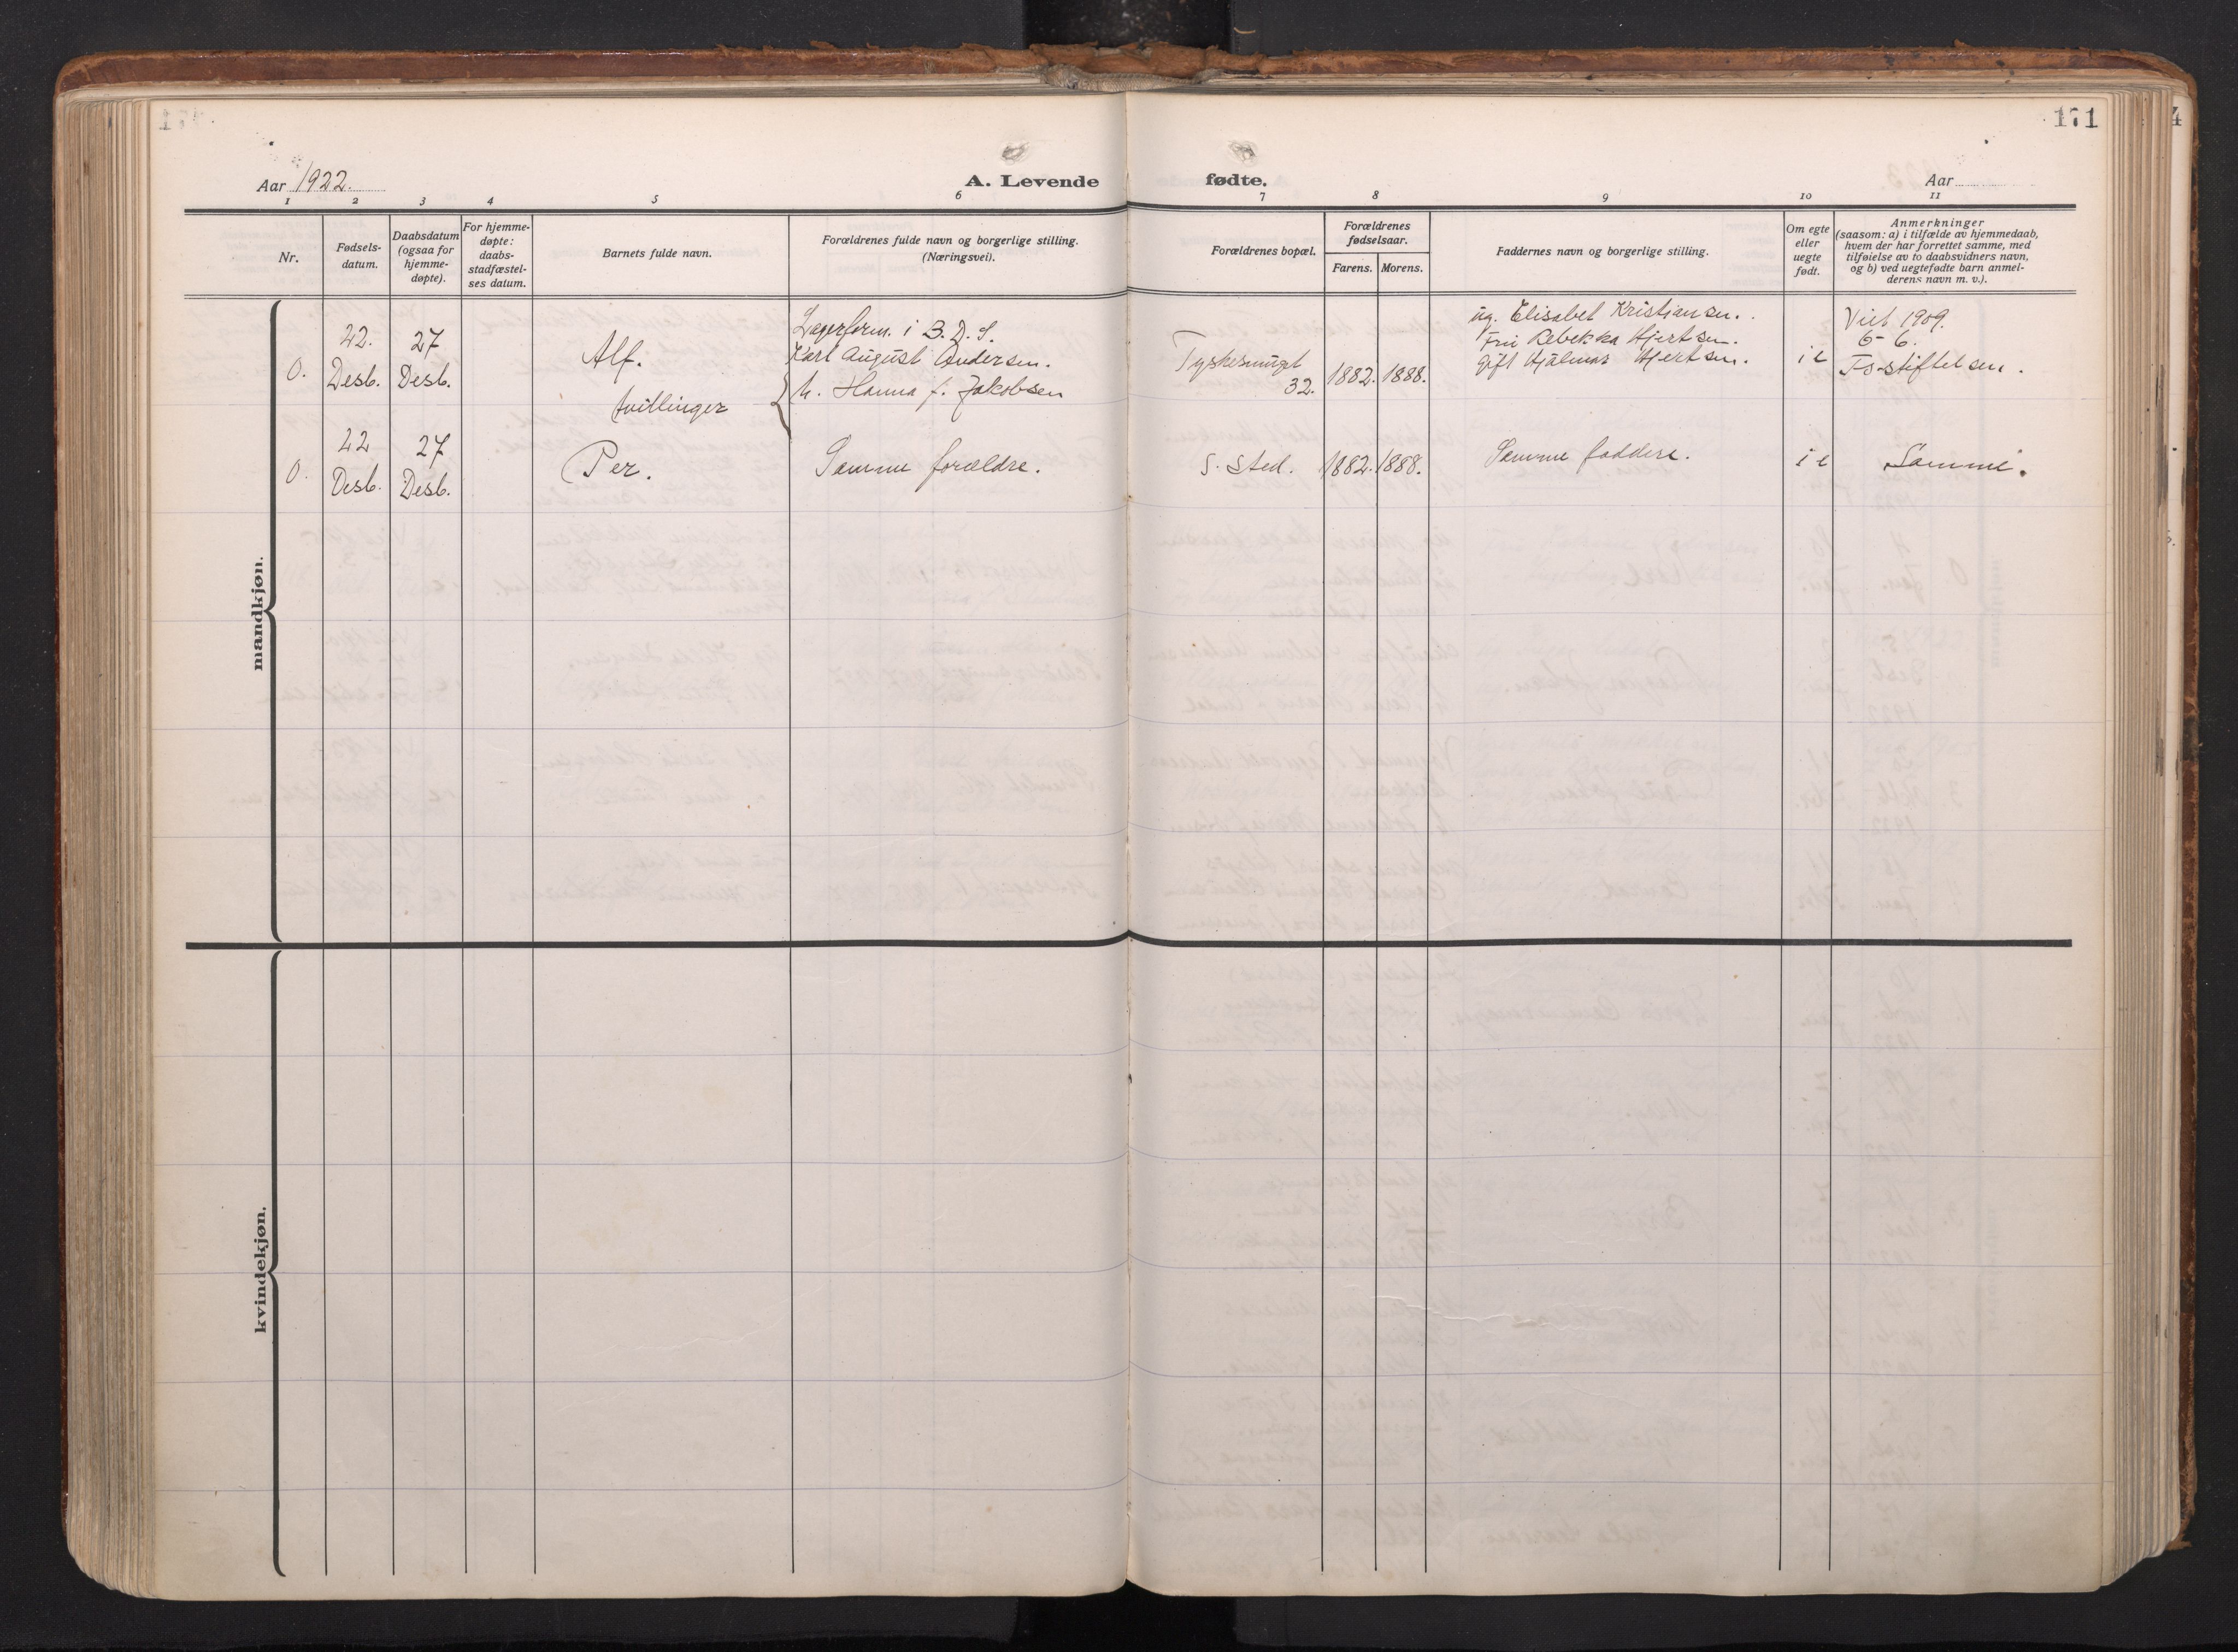 171
Aar 1922.
A. Levende
fødte.
Aar
1 2 3 4 5 6 7 8 9 10 11
Nr.
Fødsels-
datum.
Daabsdatum
(ogsaa for
hjemme-
døpte).
For hjemme-
døpte:
daabs-
stadfæstel-
ses datum.
Barnets fulde navn.
Forældrenes fulde navn og borgerlige stilling.
(Næringsvei).
Forældrenes bopæl.
Forældrenes
fødselsaar.
Farens. Morens.
Faddernes navn og borgerlige stilling.
Om egte
eller
uegte
født.
Anmerkninger
(saasom: a) i tilfælde av hjemmedaab,
hvem der har forrettet samme, med
tilføielse av to daabsvidners navn,
og b) ved uegtefødte barn anmel-
derens navn m. v.).
mandkjøn.
0.
22.
Desb.
27
Desb.
Alf.
tvillinger
Lagerform. i B. D. S.
Karl August Andersen.
h. Hanna f. Jakobsen
Tyskesmuget
32.
1882. 1888.
ug. Elisabet Kristiansen.
Fru Rebekka Hjertsen.
gift Hjalmar Hjertsen.
i e
Viet 1909.
6-6.
Fs-stiftelsen.
0.
22
Desb.
27
Desb.
Per.
Samme forældre.
s. sted.
1882. 1888.
Samme faddere.
i e
Samme.
kvindekjøn.